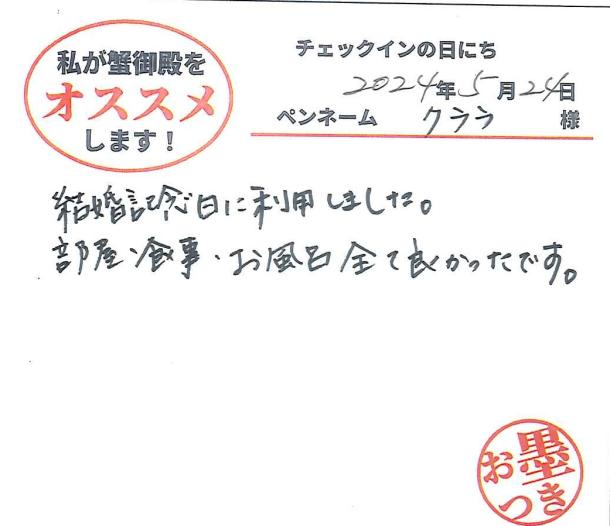 私が蟹御殿を
オススメ
します!
チェックインの日にち
2024年5月24日
ペンネーム クララ 様
結婚記念日に利用しました。
部屋・食事・お風呂全て良かったです。
お墨つき